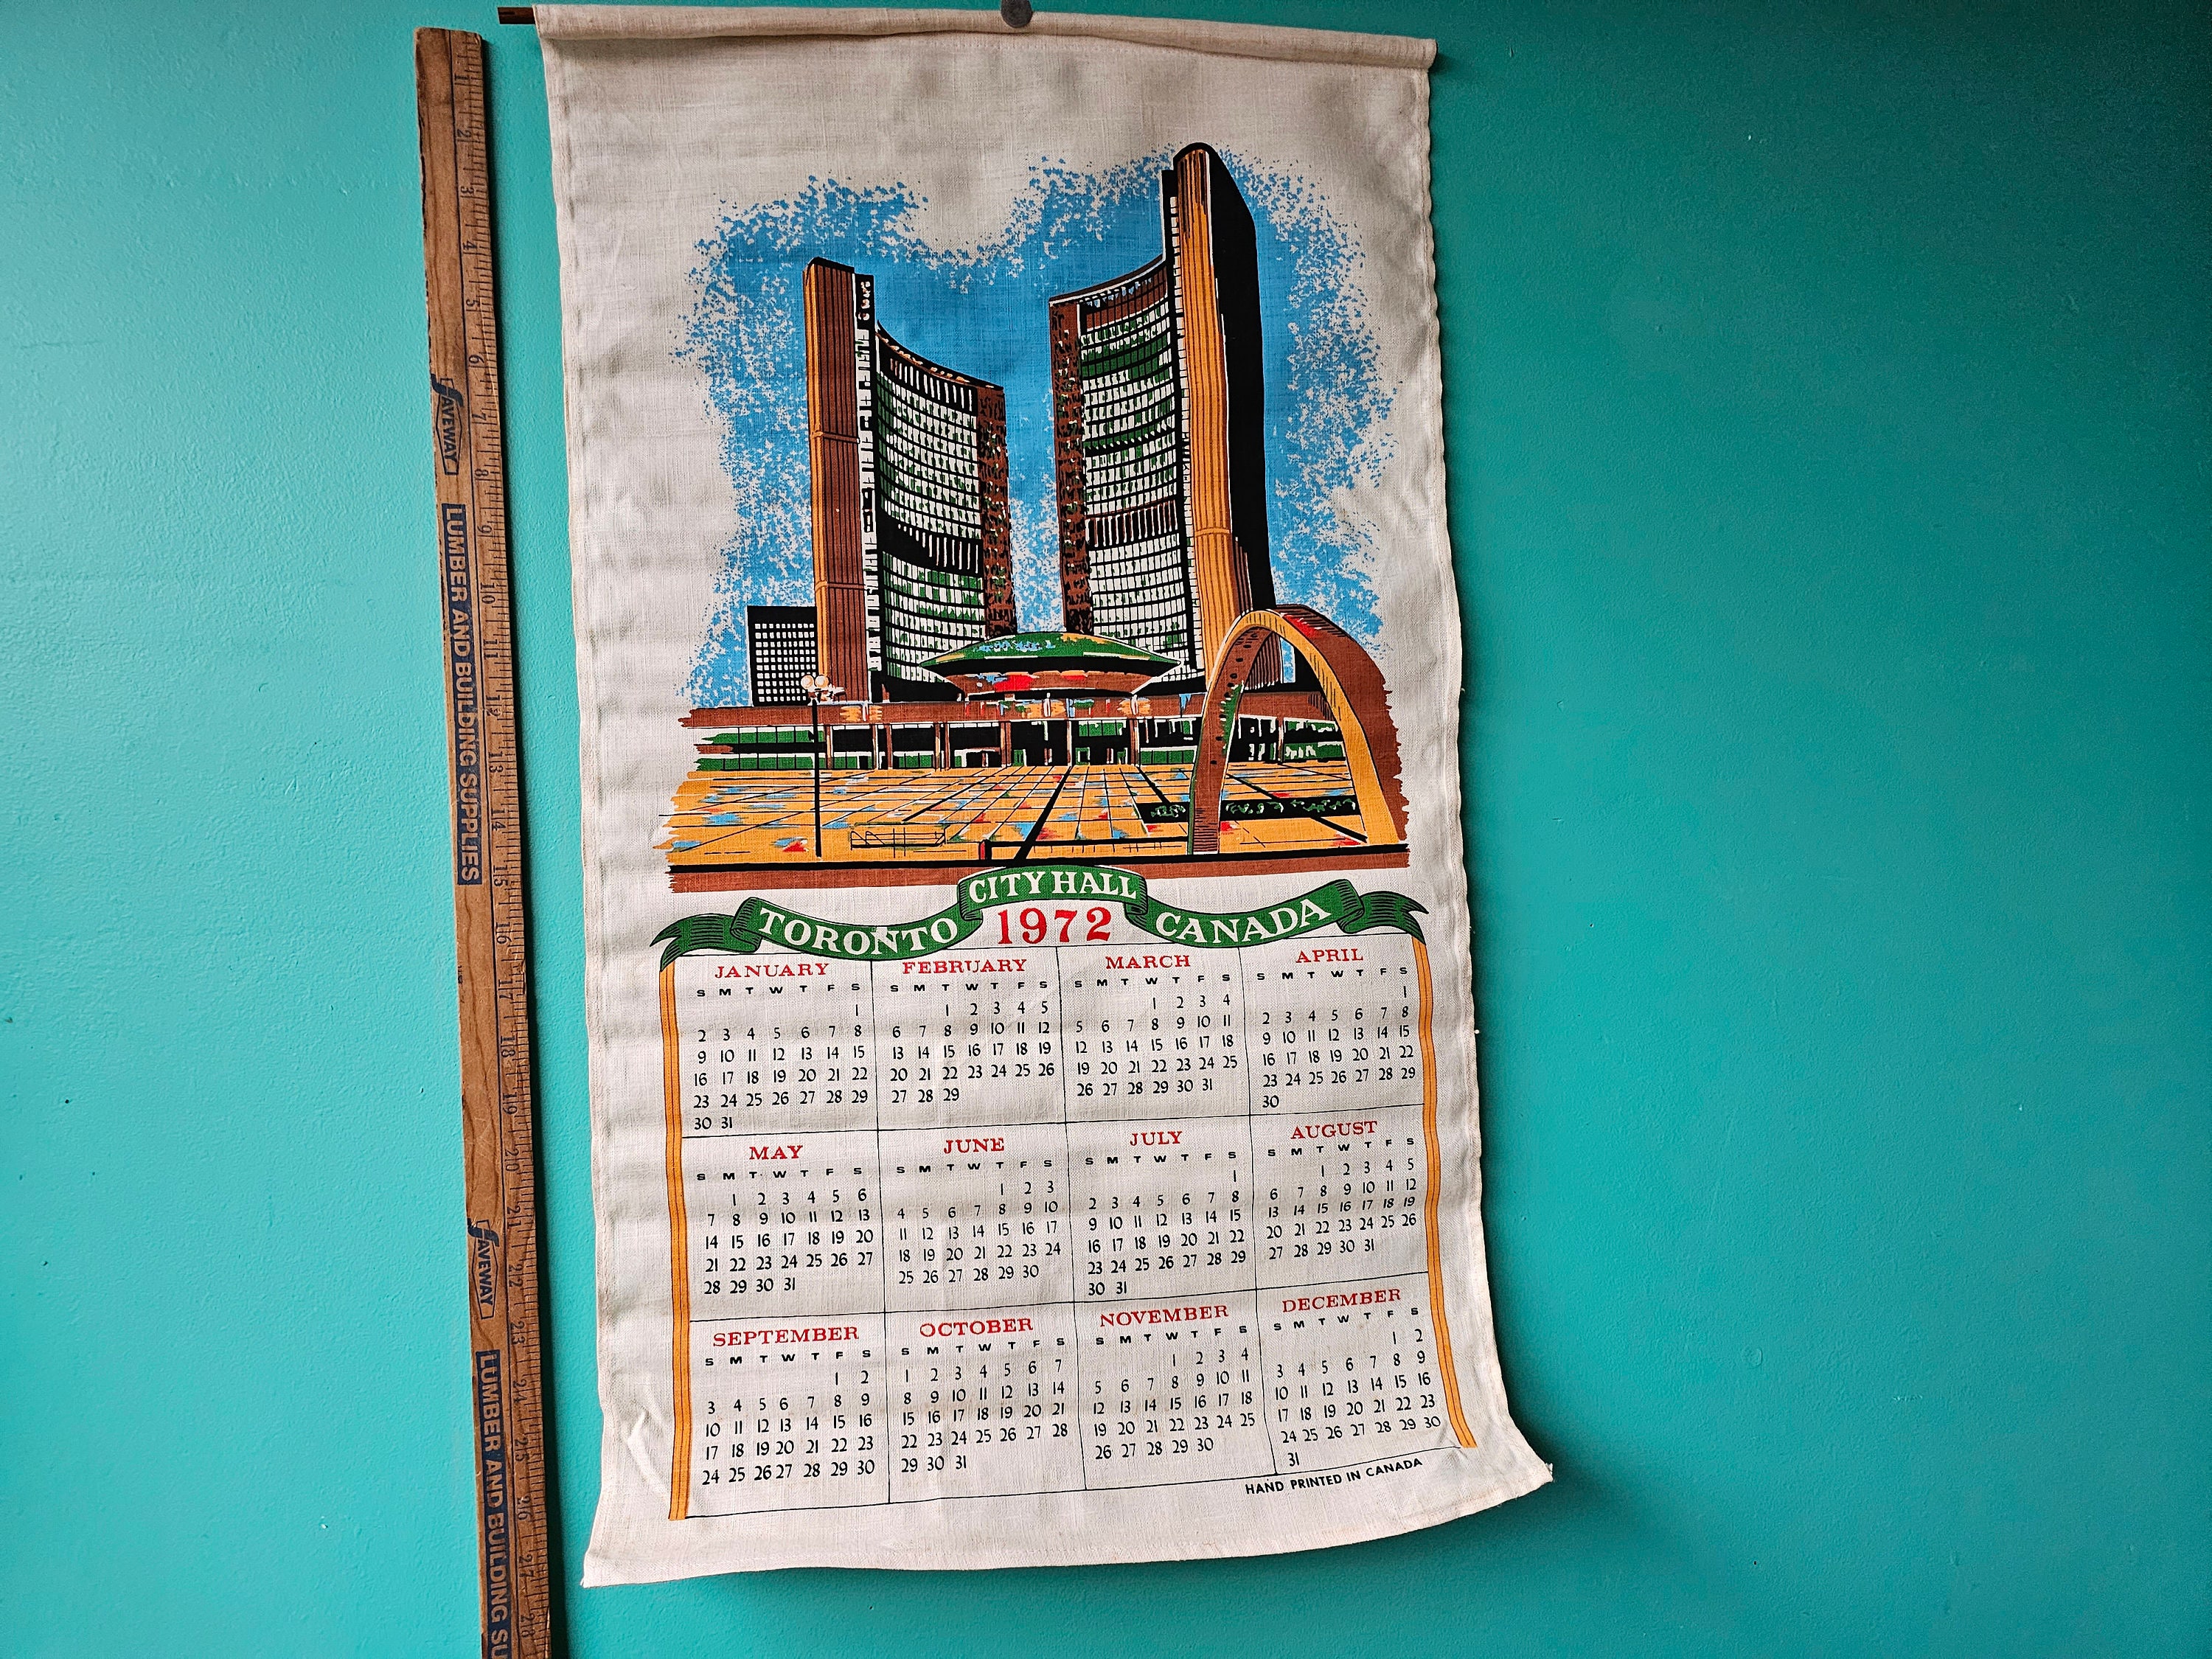 CITY HALL
TORONTO 1972 CANADA
JANUARY
S M T W T F S
1
2 3 4 5 6 7 8
9 10 11 12 13 14 15
16 17 18 19 20 21 22
23 24 25 26 27 28 29
30 31
FEBRUARY
S M T W T F S
1 2 3 4 5
6 7 8 9 10 11 12
13 14 15 16 17 18 19
20 21 22 23 24 25 26
27 28 29
MARCH
S M T W T F S
1 2 3 4
5 6 7 8 9 10 11
12 13 14 15 16 17 18
19 20 21 22 23 24 25
26 27 28 29 30 31
APRIL
S M T W T F S
1
2 3 4 5 6 7 8
9 10 11 12 13 14 15
16 17 18 19 20 21 22
23 24 25 26 27 28 29
30
MAY
S M T W T F S
1 2 3 4 5 6
7 8 9 10 11 12 13
14 15 16 17 18 19 20
21 22 23 24 25 26 27
28 29 30 31
JUNE
S M T W T F S
1 2 3
4 5 6 7 8 9 10
11 12 13 14 15 16 17
18 19 20 21 22 23 24
25 26 27 28 29 30
JULY
S M T W T F S
1
2 3 4 5 6 7 8
9 10 11 12 13 14 15
16 17 18 19 20 21 22
23 24 25 26 27 28 29
30 31
AUGUST
S M T W T F S
1 2 3 4 5
6 7 8 9 10 11 12
13 14 15 16 17 18 19
20 21 22 23 24 25 26
27 28 29 30 31
SEPTEMBER
S M T W T F S
1 2
3 4 5 6 7 8 9
10 11 12 13 14 15 16
17 18 19 20 21 22 23
24 25 26 27 28 29 30
OCTOBER
S M T W T F S
1 2 3 4 5 6 7
8 9 10 11 12 13 14
15 16 17 18 19 20 21
22 23 24 25 26 27 28
29 30 31
NOVEMBER
S M T W T F S
1 2 3 4
5 6 7 8 9 10 11
12 13 14 15 16 17 18
19 20 21 22 23 24 25
26 27 28 29 30
DECEMBER
S M T W T F S
1 2
3 4 5 6 7 8 9
10 11 12 13 14 15 16
17 18 19 20 21 22 23
24 25 26 27 28 29 30
31
HAND PRINTED IN CANADA
SAVEWAY
LUMBER AND BUILDING SUPPLIES
SAVEWAY
LUMBER AND BUILDING SU
1 2 3 4 5 6 7 8 9 10 11 12 13 14 15 16 17 18 19 20 21 22 23 24 25 26 27 28